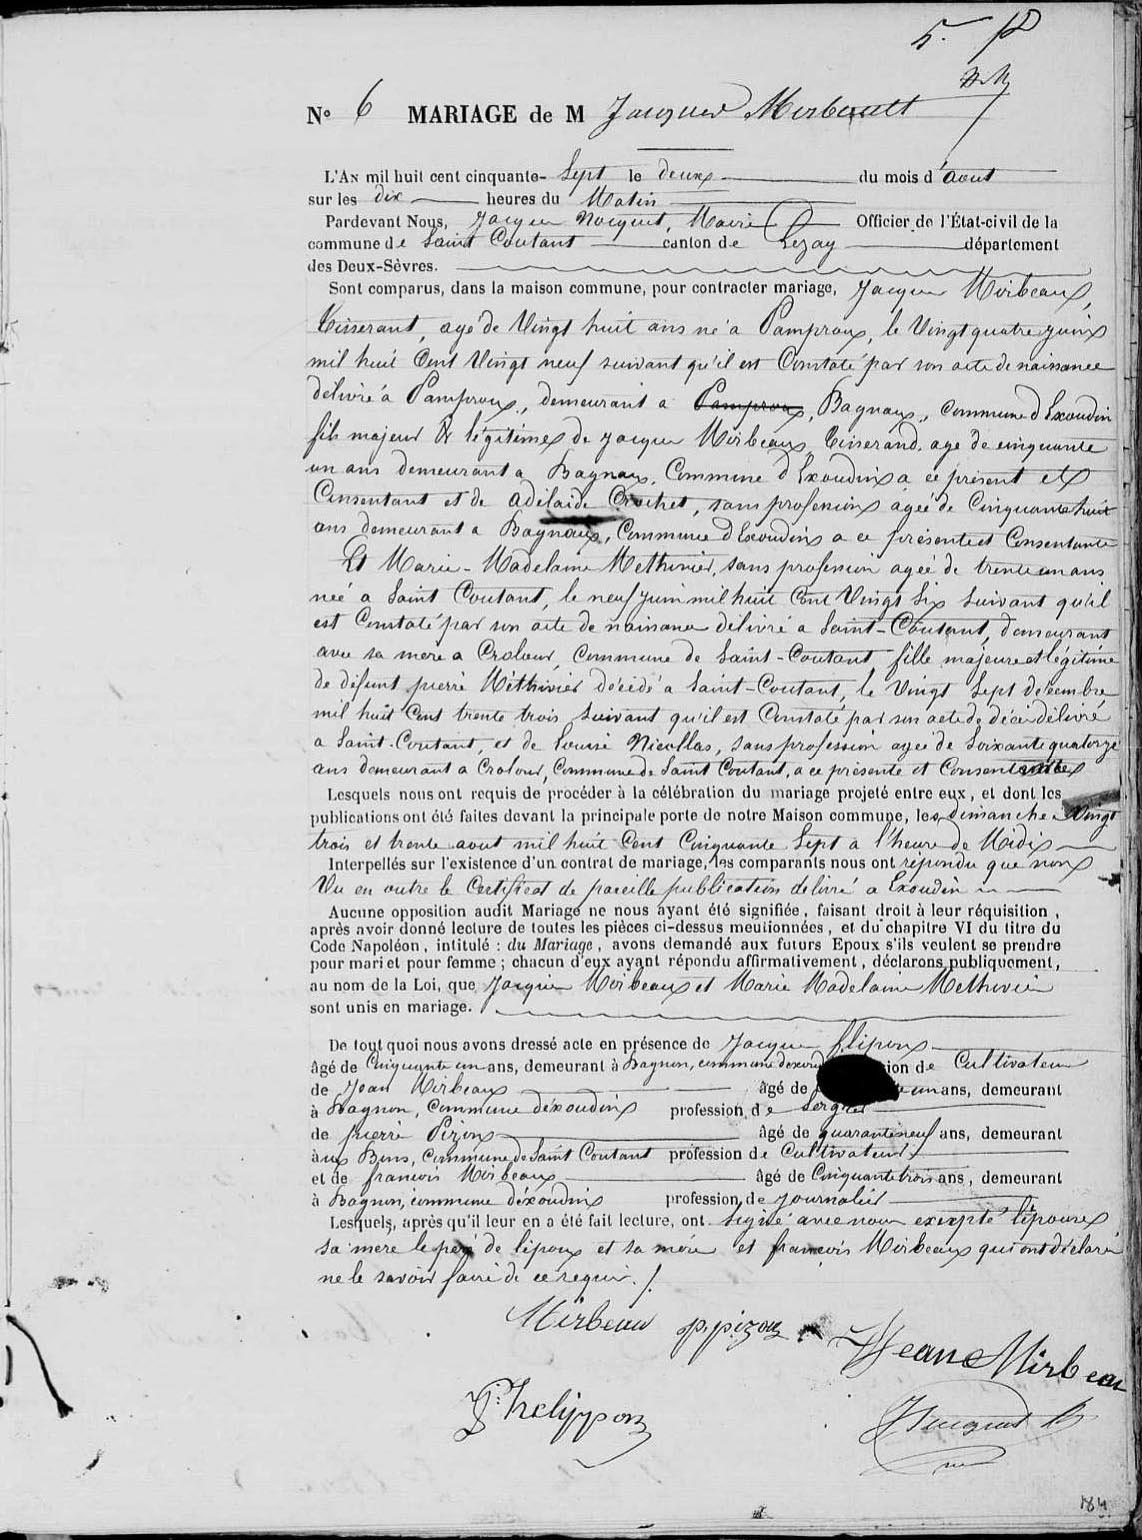 5.
N° 6 MARIAGE de M Jacques Mirbeault
L'AN mil huit cent cinquante- Sept le deux du mois d'aout
sur les dix heures du Matin
Pardevant Nous, Jacques Nocquet, Maire Officier de l'État-civil de la
commune de Saint Coutant canton de Lezay département
des Deux-Sèvres.
Sont comparus, dans la maison commune, pour contracter mariage, Jacques Mirbeaux,
tisserant, agé de Vingt huit ans né a Pamproux, le Vingt quatre juin
mil huit Cent Vingt neuf suivant qu'il est Constaté par son acte de naissance
délivré à Pamproux, demeurant a Pamproux, Bagnaux, commune d'Exoudun
fils majeur & légitime de jacques Mirbeaux tisserand, age de cinquante
un ans demeurant a Bagnaux, Commune d'Exoudun a ce présent et
Consentant et de adélaide Crochet, sans profession agée de Cinquante huit
ans demeurant a Bagnaux, Commune d'Exoudun a ce présente et Consentante
Et Marie-Madelaine Methivier, sans profession agée de trente un ans
née a Saint Coutant, le neuf juin mil huit Cent Vingt Six suivant qu'il
est Constaté par son acte de naissance délivré a Saint-Coutant, demeurant
avec sa mere a Croloeur, Commune de Saint-Coutant fille majeure et légitime
de défunt pierre Méthivier décédé a Saint-Coutant, le Vingt Sept décembre
mil huit Cent trente trois suivant qu'il est Constaté par son acte de décès délivré
a Saint-Coutant, et de Louise Nicollas, sans profession agée de Soixante quatorze
ans demeurant a Croloeur, Commune de Saint Coutant, a ce présente et Consentante
Lesquels nous ont requis de procéder à la célébration du mariage projeté entre eux, et dont les
publications ont été faites devant la principale porte de notre Maison commune, les dimanche Vingt
trois et trente aout mil huit Cent Cinquante Sept a l'heure de Midi
Interpellés sur l'existence d'un contrat de mariage, les comparants nous ont répondu que non
Vu en outre le Certificat de pareille publication délivré a Exoudun
Aucune opposition audit Mariage ne nous ayant été signifiée, faisant droit à leur réquisition,
après avoir donné lecture de toutes les pièces ci-dessus mentionnées, et du chapitre VI du titre du
Code Napoléon, intitulé : du Mariage, avons demandé aux futurs Epoux s'ils veulent se prendre
pour mari et pour femme ; chacun d'eux ayant répondu affirmativement, déclarons publiquement,
au nom de la Loi, que Jacques Mirbeaux et Marie Madelaine Methivier
sont unis en mariage.
De tout quoi nous avons dressé acte en présence de Jacques flipon
âgé de Cinquante un ans, demeurant à Bagnon, commune dexoud ion de Cultivateur
de Jean Mirbeaux âgé de un ans, demeurant
à Bagnon, Commune déxoudun profession de Sergier
de pierre Pizon âgé de quarante neuf ans, demeurant
à aux Buns, Commune de Saint Coutant profession de Cultivateur
et de francois Mirbeaux âgé de Cinquante trois ans, demeurant
à Bagnon, commune déxoudun profession de journalier
Lesquels, après qu'il leur en a été fait lecture, ont signé avec nous excepté l'épouse
sa mere le pere de l'époux et sa mère et francois Mirbeaux qui ont déclaré
ne le savoir faire de ce requis ./.
Mirbeau p, pizon Jean Mirbeau
J. Phelippon
184